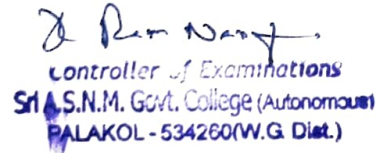 Controller of Examinations
Sri A.S.N.M. Govt. College (Autonomous)
PALAKOL - 534260(W.G. Dist.)